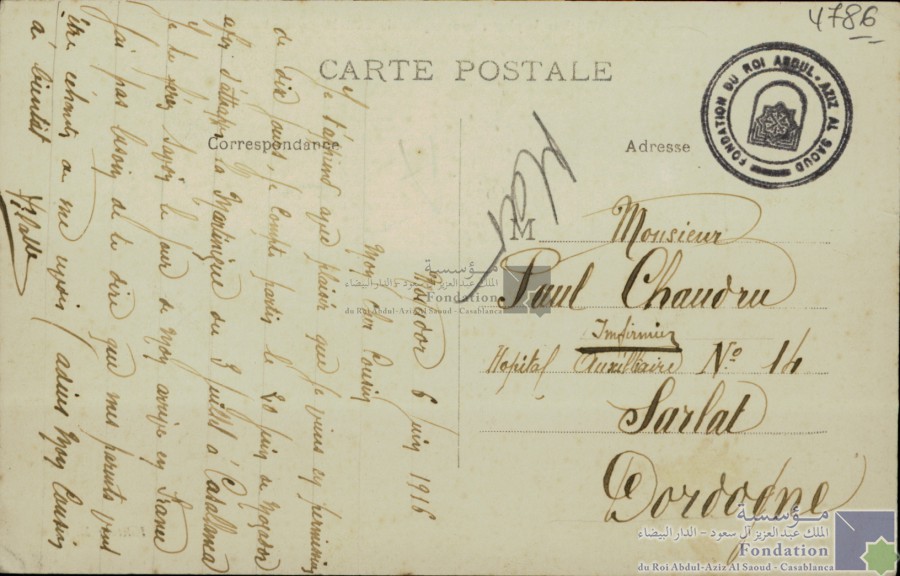 4786
CARTE POSTALE
Correspondance
Adresse
FONDATION DU ROI ABDUL-AZIZ AL SAOUD
M
Monsieur
Paul Chaudru
Infirmier
Hopital Auxilliaire Nº 14
Sarlat
Dordogne
Mogador 6 juin 1916
Mon cher Cousin
Je t'apprend avec plaisir que je viens en permission
de dix jours, je compte partir le 20 juin de Mogador
afin d'attraper la Martinique du 3 juillet à Casablanca
je te ferai savoir le jour de mon arrivée en France
J'ai pas besoin de te dire que mes parents vont
être contents de me revoir, adieu Mon Cousin
à bientôt
مؤسسة
الملك عبد العزيز آل سعود - الدار البيضاء
Fondation
du Roi Abdul-Aziz Al Saoud - Casablanca
مؤسسة
الملك عبد العزيز آل سعود - الدار البيضاء
Fondation
du Roi Abdul-Aziz Al Saoud - Casablanca